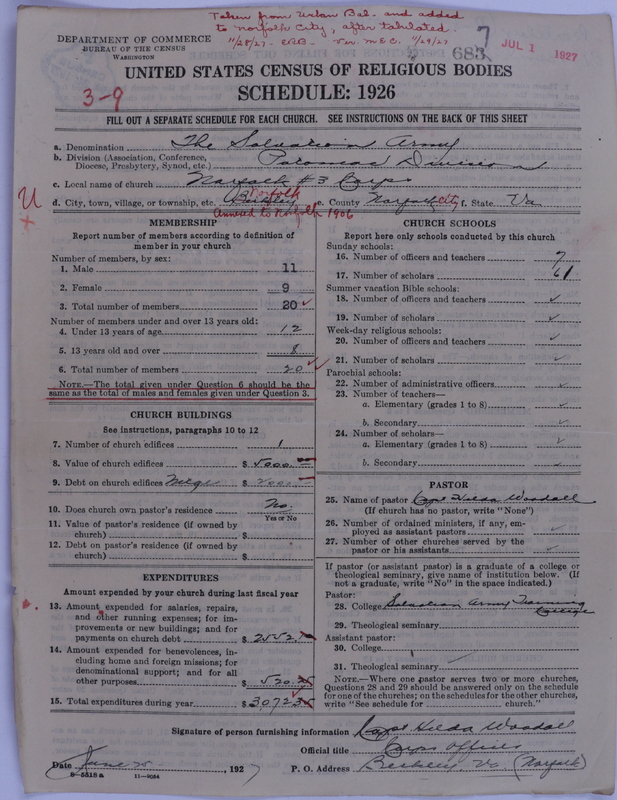 Taken from Urban Bal. and added
to Norfolk City, after tabulated.
11/28/27. ERB. Ver. M.E.C. 11/29/27
7
683
JUL 1 1927
DEPARTMENT OF COMMERCE
BUREAU OF THE CENSUS
WASHINGTON
UNITED STATES CENSUS OF RELIGIOUS BODIES
SCHEDULE: 1926
3-9
FILL OUT A SEPARATE SCHEDULE FOR EACH CHURCH. SEE INSTRUCTIONS ON THE BACK OF THIS SHEET
a. Denomination The Salvation Army
b. Division (Association, Conference, Diocese, Presbytery, Synod, etc.) Potomac Division
c. Local name of church Norfolk #3 Corps
d. City, town, village, or township, etc. Berkley Norfolk e. County Norfolk City f. State Va
Annexed to Norfolk 1906
U
MEMBERSHIP
Report number of members according to definition of member in your church
Number of members, by sex:
1. Male 11
2. Female 9
3. Total number of members 20
Number of members under and over 13 years old:
4. Under 13 years of age 12
5. 13 years old and over 8
6. Total number of members 20
NOTE.—The total given under Question 6 should be the
same as the total of males and females given under Question 3.
CHURCH BUILDINGS
See instructions, paragraphs 10 to 12
7. Number of church edifices 1
8. Value of church edifices $ 5000.
9. Debt on church edifices $
10. Does church own pastor's residence No.
Yes or No
11. Value of pastor's residence (if owned by
church) $
12. Debt on pastor's residence (if owned by
church) $
EXPENDITURES
Amount expended by your church during last fiscal year
13. Amount expended for salaries, repairs,
and other running expenses; for im-
provements or new buildings; and for
payments on church debt $ 2552.
14. Amount expended for benevolences, in-
cluding home and foreign missions; for
denominational support; and for all
other purposes $ 520.
15. Total expenditures during year $ 3072
CHURCH SCHOOLS
Report here only schools conducted by this church
Sunday schools:
16. Number of officers and teachers 7
17. Number of scholars 61
Summer vacation Bible schools:
18. Number of officers and teachers
19. Number of scholars
Week-day religious schools:
20. Number of officers and teachers
21. Number of scholars
Parochial schools:
22. Number of administrative officers
23. Number of teachers—
a. Elementary (grades 1 to 8)
b. Secondary
24. Number of scholars—
a. Elementary (grades 1 to 8)
b. Secondary
PASTOR
25. Name of pastor Capt Hilda Woodall
(If church has no pastor, write "None")
26. Number of ordained ministers, if any, em-
ployed as assistant pastors
27. Number of other churches served by the
pastor or his assistants
If pastor (or assistant pastor) is a graduate of a college or
theological seminary, give name of institution below. (If
not a graduate, write "No" in the space indicated.)
Pastor:
28. College Salvation Army Training College
29. Theological seminary
Assistant pastor:
30. College
31. Theological seminary
NOTE.—Where one pastor serves two or more churches,
Questions 28 and 29 should be answered only on the schedule
for one of the churches; on the schedules for the other churches,
write "See schedule for church."
Signature of person furnishing information Capt Hilda Woodall
Official title Corps Officer
Date June 25, 1927 P. O. Address Berkley, Va (Norfolk)
8-5518 a 11-9034